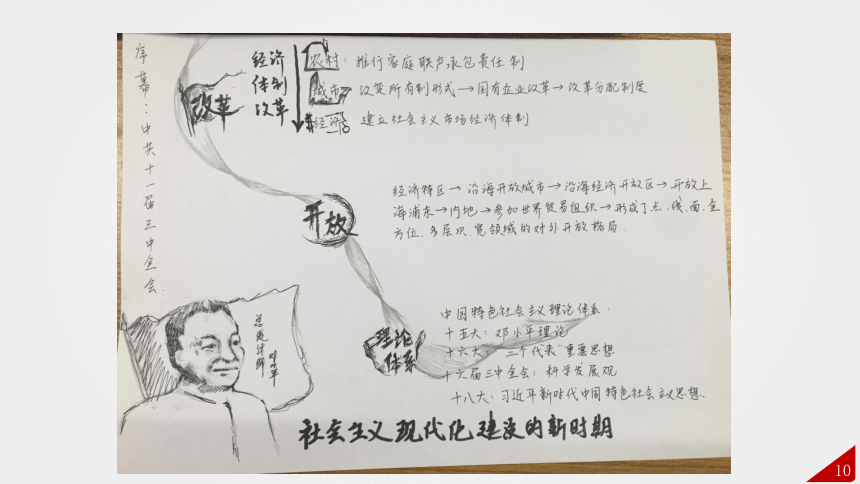 序幕：中共十一届三中全会.
经济
体制
改革
农村：推行家庭联产承包责任制
城市 改变所有制形式→国有企业改革→改革分配制度
经济 建立社会主义市场经济体制
改革
经济特区→沿海开放城市→沿海经济开放区→开放上
海浦东→内地→参加世界贸易组织→形成了点、线、面、全
方位、多层次、宽领域的对外开放格局.
开放
中国特色社会主义理论体系.
十五大：邓小平理论
十六大："三个代表"重要思想
十六届三中全会：科学发展观
十八大：习近平新时代中国特色社会主义思想.
理论
体系
总设计师
邓小平
社会主义现代化建设的新时期
10